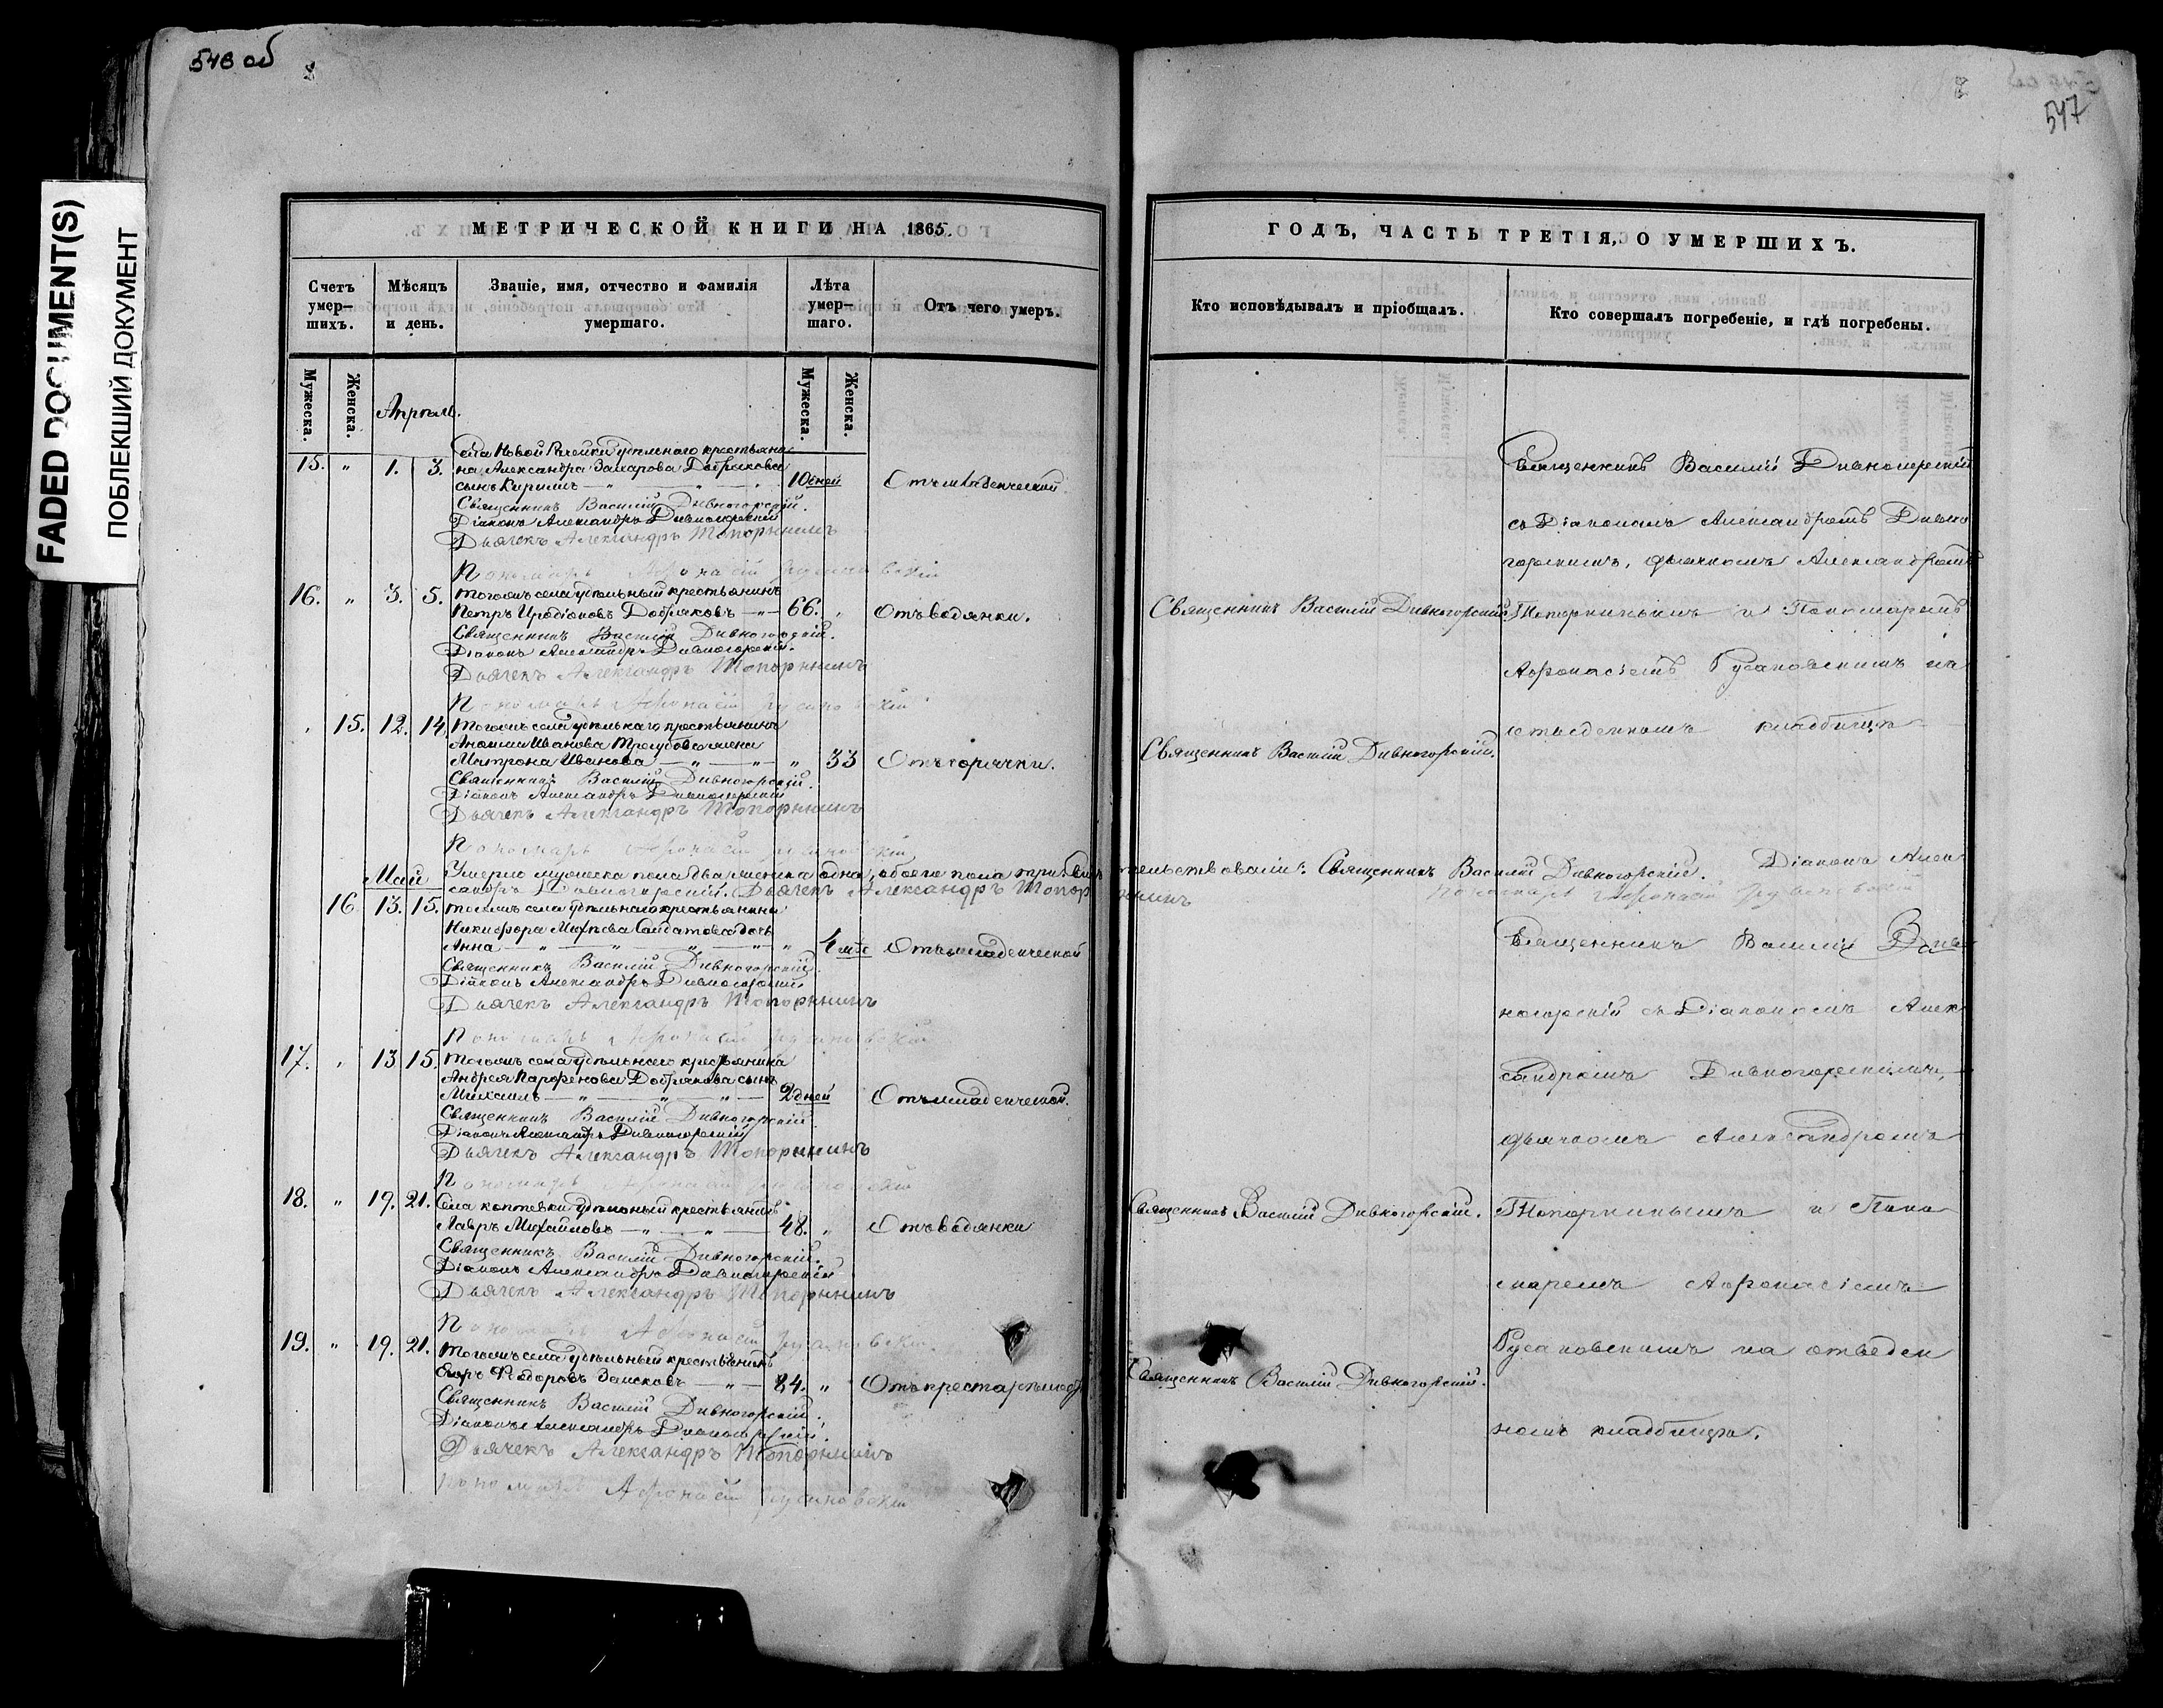 546 об
547
FADED DOCUMENT(S)
ПОБЛЕКШИЙ ДОКУМЕНТ
МЕТРИЧЕСКОЙ КНИГИ НА 1865.
Счетъ умер-шихъ.
Мѣсяцъ и день.
Званіе, имя, отчество и фамилія умершаго.
Лѣта умер-шаго.
Отъ чего умеръ.
Мужеска.
Женска.
Мужеска.
Женска.
Апрѣль.
Села Новой удѣльнаго крестьяни
15. " 1. 3. на Александра Захарова Добрякова
сынъ Кириллъ 10 дней Отъ младенческой
Священникъ Василій Дивногорскій.
Діаконъ Александръ Дивногорскій
Дьячекъ Александръ Топорнинъ
Пономарь Афонасій Русановскій
16. " 3. 5. Тогожъ села удѣльный крестьянинъ
Петръ Иродіоновъ Добряковъ 66. " Отъ водянки.
Священникъ Василій Дивногорскій.
Діаконъ Александръ Дивногорскій.
Дьячекъ Александръ Топорнинъ
Пономарь Афонасій Русановскій
" 15. 12. 14. Тогожъ села удѣльнаго крестьянина
Иванова жена
Матрона Иванова " 33 Отъ горячки.
Священникъ Василій Дивногорскій.
Діаконъ Александръ Дивногорскій
Дьячекъ Александръ Топорнинъ
Пономарь Афонасій Русановскій
Умерло мужеска пола два женска одна, обоего пола три. Свидѣтельствовали: Священникъ Василій Дивногорскій. Діаконъ Алек
Май сандръ Дивногорскій. Дьячекъ Александръ Топорнинъ Пономарь Афонасій Русановскій
16. 13. 15. Тогожъ села удѣльнаго крестьянина
Никифора дочь
Анна " 4 мѣс Отъ младенческой
Священникъ Василій Дивногорскій.
Діаконъ Александръ Дивногорскій
Дьячекъ Александръ Топорнинъ
Пономарь Афонасій Русановскій
17. " 13. 15. Тогожъ села удѣльнаго крестьянина
Андрея Парфенова Добрякова сынъ
Михаилъ 2 дней Отъ младенческой.
Священникъ Василій Дивногорскій
Діаконъ Александръ Дивногорскій
Дьячекъ Александръ Топорнинъ
Пономарь Афонасій Русановскій
18. " 19. 21. Села Коптевки удѣльный крестьянинъ
Лавръ Михайловъ 48. " Отъ водянки
Священникъ Василій Дивногорскій.
Діаконъ Александръ Дивногорскій
Дьячекъ Александръ Топорнинъ
Пономарь Афонасій Русановскій
19. " 19. 21. Тогожъ села удѣльный крестьянинъ
Егоръ Федоровъ 84. "
Священникъ Василій Дивногорскій.
Діаконъ Александръ Дивногорскій.
Дьячекъ Александръ Топорнинъ
Пономарь Афонасій Русановскій
ГОДЪ, ЧАСТЬ ТРЕТІЯ, О УМЕРШИХЪ.
Кто исповѣдывалъ и пріобщалъ.
Кто совершалъ погребеніе, и гдѣ погребены.
Священникъ Василій Дивногорскій
съ Діакономъ Александромъ Дивно
горскимъ, дьячкомъ Александромъ
Священникъ Василій Дивногорскій. Топорнинымъ и Пономаремъ
Афонасіемъ Русановскимъ на
отведенномъ кладбищѣ
Священникъ Василій Дивногорскій.
Священникъ Василій Див
ногорскій съ Діакономъ Алек
сандромъ Дивногорскимъ,
дьячкомъ Александромъ
Священникъ Василій Дивногорскій. Топорнинымъ и Поно
маремъ Афонасіемъ
Русановскимъ на отведен
Священникъ Василій Дивногорскій.
номъ кладбищѣ.